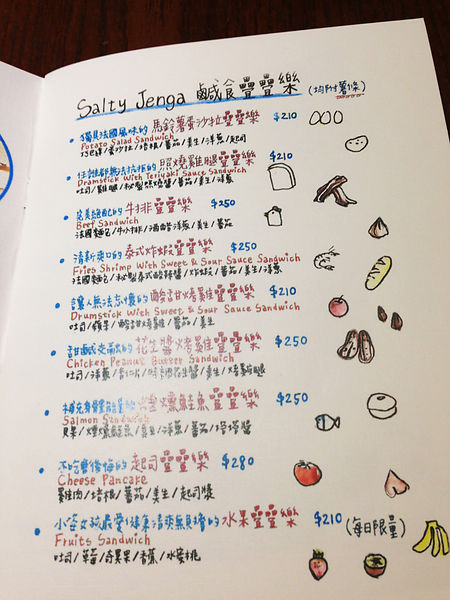 Salty Jenga 鹹食疊疊樂 (均附薯條)
獨具法國風味的 馬鈴薯蛋沙拉疊疊樂 $210
Potato Salad Sandwich
巧巴達/蛋沙拉/培根/蕃茄/美生/洋蔥/起司
任誰都無法抗拒的 照燒雞腿疊疊樂 $210
Drumstick With Teriyaki Sauce Sandwich
吐司/雞腿/秘製照燒醬/蕃茄/美生/洋蔥
完美絕配的 牛排疊疊樂 $250
Beef Sandwich
法國麵包/牛小排/酒醋洋蔥/美生/蕃茄
清新爽口的 泰式炸蝦疊疊樂 $250
Fries Shrimp With Sweet & Sour Sauce Sandwich
法國麵包/秘製泰式酸辣醬/炸蝦/蕃茄/美生/洋蔥
讓人無法忘懷的 酸甜烤雞疊疊樂 $210
Drumstick With Sweet & Sour Sauce Sandwich
吐司/蘋果/酸甜烤雞/蕃茄/美生
甜鹹交滿的 花生醬烤雞疊疊樂 $250
Chicken Peanut Butter Sandwich
吐司/洋蔥/杏仁片/特調花生醬/美生/烤雞腿
補充身體能量的 煙燻鮭魚疊疊樂 $250
Salmon Sandwich
貝果/煙燻鮭魚/美生/洋蔥/蕃茄/塔塔醬
不吃會後悔的 起司疊疊樂 $280
Cheese Pancake
雞肉/培根/蕃茄/美生/起司醬
水果疊疊樂 $210 (每日限量)
Fruits Sandwich
吐司/草莓/奇異果/香蕉/水蜜桃